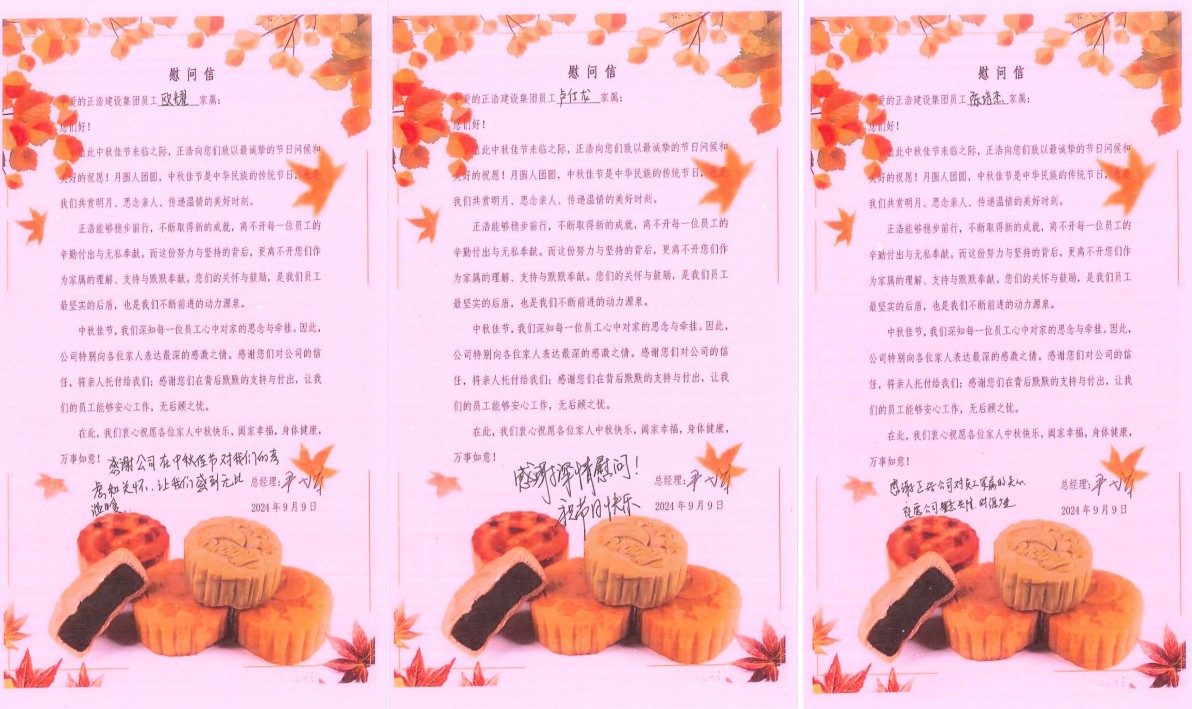 慰 问 信
亲爱的正浩建设集团员工欧耀家属：
您们好！
值此中秋佳节来临之际，正浩向您们致以最诚挚的节日问候和
美好的祝愿！月圆人团圆，中秋佳节是中华民族的传统节日，也是
我们共赏明月、思念亲人、传递温情的美好时刻。
正浩能够稳步前行，不断取得新的成就，离不开每一位员工的
辛勤付出与无私奉献。而这份努力与坚持的背后，更离不开您们作
为家属的理解、支持与默默奉献。您们的关怀与鼓励，是我们员工
最坚实的后盾，也是我们不断前进的动力源泉。
中秋佳节，我们深知每一位员工心中对家的思念与牵挂。因此，
公司特别向各位家人表达最深的感激之情。感谢您们对公司的信
任，将亲人托付给我们；感谢您们在背后默默的支持与付出，让我
们的员工能够安心工作，无后顾之忧。
在此，我们衷心祝愿各位家人中秋快乐，阖家幸福，身体健康，
万事如意！
感谢公司在中秋佳节对我们的考
虑和关怀，让我们感到无比
温暖
总经理：
2024 年 9 月 9 日
慰 问 信
亲爱的正浩建设集团员工卢仕龙家属：
您们好！
值此中秋佳节来临之际，正浩向您们致以最诚挚的节日问候和
美好的祝愿！月圆人团圆，中秋佳节是中华民族的传统节日，也是
我们共赏明月、思念亲人、传递温情的美好时刻。
正浩能够稳步前行，不断取得新的成就，离不开每一位员工的
辛勤付出与无私奉献。而这份努力与坚持的背后，更离不开您们作
为家属的理解、支持与默默奉献。您们的关怀与鼓励，是我们员工
最坚实的后盾，也是我们不断前进的动力源泉。
中秋佳节，我们深知每一位员工心中对家的思念与牵挂。因此，
公司特别向各位家人表达最深的感激之情。感谢您们对公司的信
任，将亲人托付给我们；感谢您们在背后默默的支持与付出，让我
们的员工能够安心工作，无后顾之忧。
在此，我们衷心祝愿各位家人中秋快乐，阖家幸福，身体健康，
万事如意！
感谢深情慰问！
祝节日快乐
总经理：
2024 年 9 月 9 日
慰 问 信
亲爱的正浩建设集团员工陈培杰家属：
您们好！
值此中秋佳节来临之际，正浩向您们致以最诚挚的节日问候和
美好的祝愿！月圆人团圆，中秋佳节是中华民族的传统节日，也是
我们共赏明月、思念亲人、传递温情的美好时刻。
正浩能够稳步前行，不断取得新的成就，离不开每一位员工的
辛勤付出与无私奉献。而这份努力与坚持的背后，更离不开您们作
为家属的理解、支持与默默奉献。您们的关怀与鼓励，是我们员工
最坚实的后盾，也是我们不断前进的动力源泉。
中秋佳节，我们深知每一位员工心中对家的思念与牵挂。因此，
公司特别向各位家人表达最深的感激之情。感谢您们对公司的信
任，将亲人托付给我们；感谢您们在背后默默的支持与付出，让我
们的员工能够安心工作，无后顾之忧。
在此，我们衷心祝愿各位家人中秋快乐，阖家幸福，身体健康，
万事如意！
感谢正浩公司对员工家属的关心
公司
总经理：
2024 年 9 月 9 日